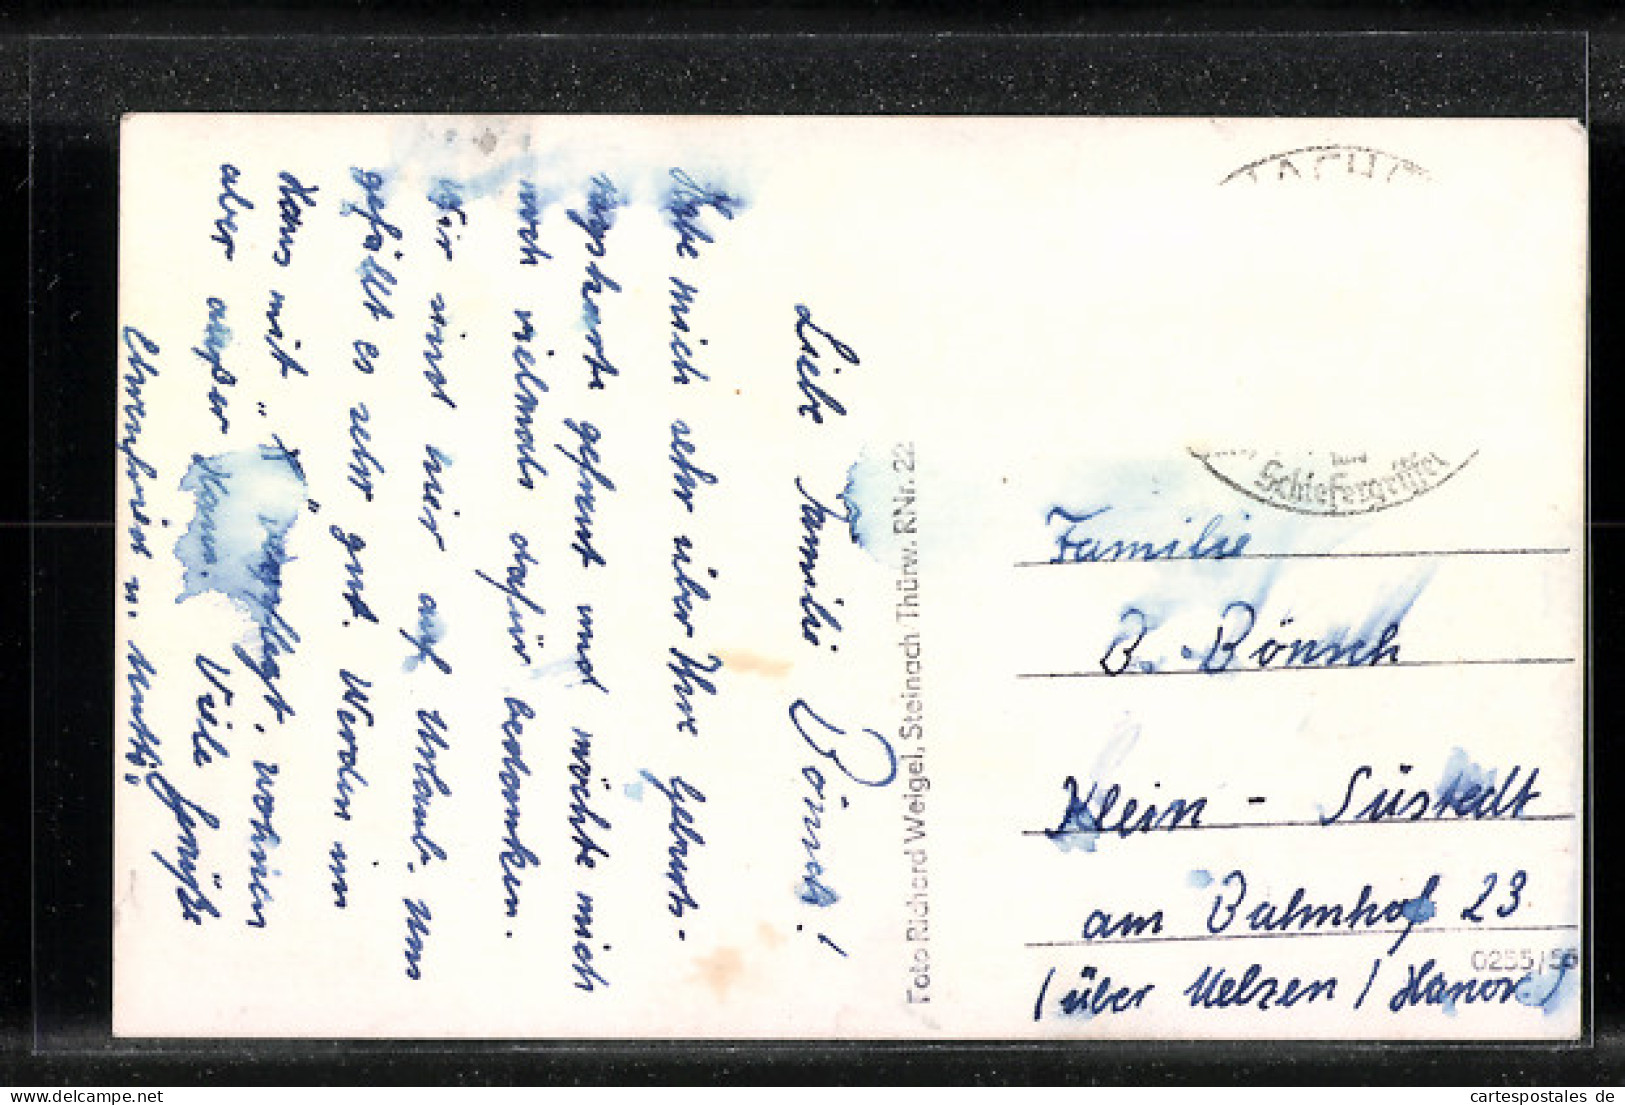 Liebe Familie Bönsch!
Habe mich sehr über Ihre Geburts-
tagskarte gefreut und möchte mich
noch vielmals dafür bedanken.
Wir sind hier auf Urlaub. Uns
gefällt es sehr gut. Werden im
Haus mit " " verpflegt, wohnen
aber außer Haus. Viele Grüße
u. Mutti
Foto Richard Weigel, Steinach Thürw. RNr. 22
ACH
und
Schiefergriffel
Familie
B. Bönsch
Klein - Süstedt
am Bahnhof 23
(über Uelzen / Hanov.)
0255/56
cartespostales de